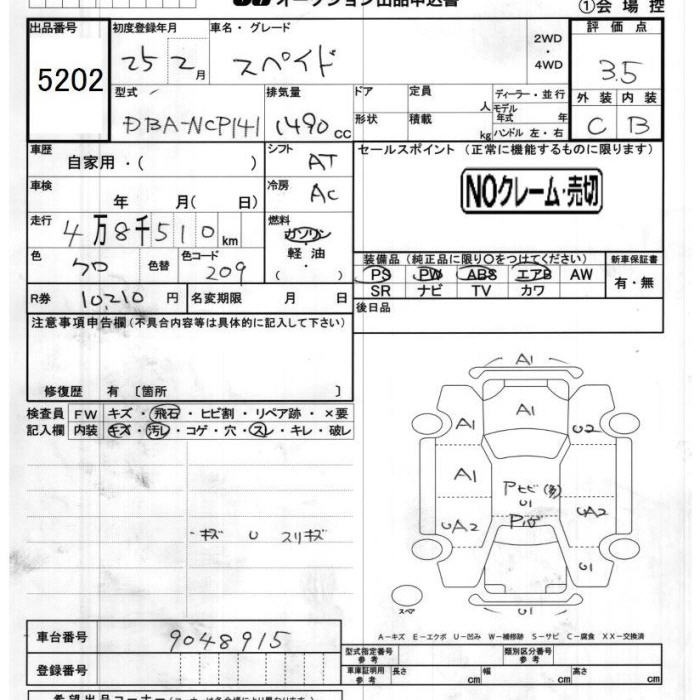 オークション出品申込書
①会場控
出品番号 初度登録年月 車名・グレード 評価点
5202 25 2月 スペイド 2WD ・ 4WD 3.5
型式 排気量 ドア 定員 人 ディーラー・並行 外装 内装
DBA-NCP141 1490 cc 形状 積載 kg モデル年式 年 ハンドル 左・右 C B
車歴 自家用・( ) シフト AT セールスポイント (正常に機能するものに限ります)
車検 年 月( 日) 冷房 AC NOクレーム・売切
走行 4万8千510km 燃料 ガソリン
軽油
( )
色 クロ 色替 色コード 209
装備品 (純正品に限り○をつけてください) 新車保証書
PS PW ABS エアB AW 有・無
SR ナビ TV カワ
R券 10,210円 名変期限 月 日
後日品
注意事項申告欄(不具合内容等は具体的に記入して下さい)
修復歴 有 〔箇所 〕
検査員 FW キズ・飛石・ヒビ割・リペア跡・×要
記入欄 内装 キズ・汚レ・コゲ・穴・スレ・キレ・破レ
キズ U スリキズ
A1
A1
A1 U2
A1
Pヒビ(多)
U1
UA2 UA2
Pハゲ
U1
スペア U1
A-キズ E-エクボ U-凹み W-補修跡 S-サビ C-腐食 XX-交換済
車台番号 9048915
登録番号
型式指定番号 参考 類別区分番号 参考
車庫証明用 参考 長さ cm 幅 cm 高さ cm
希望出品コーナー